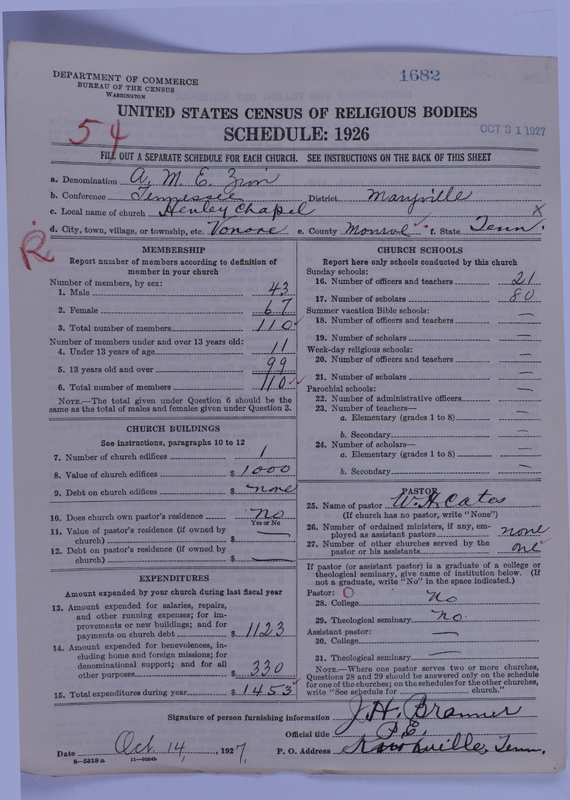 1682
DEPARTMENT OF COMMERCE
BUREAU OF THE CENSUS
WASHINGTON
UNITED STATES CENSUS OF RELIGIOUS BODIES
SCHEDULE: 1926
OCT 31 1927
54
FILL OUT A SEPARATE SCHEDULE FOR EACH CHURCH. SEE INSTRUCTIONS ON THE BACK OF THIS SHEET
a. Denomination A. M. E. Zion
b. Conference Tennessee District Maryville
c. Local name of church Henley Chapel
d. City, town, village, or township, etc. Vonore e. County Monroe f. State Tenn. X
R
MEMBERSHIP
Report number of members according to definition of
member in your church
Number of members, by sex:
1. Male 43
2. Female 67
3. Total number of members 110
Number of members under and over 13 years old:
4. Under 13 years of age 11
5. 13 years old and over 99
6. Total number of members 110
NOTE.—The total given under Question 6 should be the
same as the total of males and females given under Question 3.
CHURCH BUILDINGS
See instructions, paragraphs 10 to 12
7. Number of church edifices 1
8. Value of church edifices $ 1000
9. Debt on church edifices $ none
10. Does church own pastor's residence No
Yes or No
11. Value of pastor's residence (if owned by
church) $ —
12. Debt on pastor's residence (if owned by
church) $ —
EXPENDITURES
Amount expended by your church during last fiscal year
13. Amount expended for salaries, repairs,
and other running expenses; for im-
provements or new buildings; and for
payments on church debt $ 1123
14. Amount expended for benevolences, in-
cluding home and foreign missions; for
denominational support; and for all
other purposes $ 330
15. Total expenditures during year $ 1453
CHURCH SCHOOLS
Report here only schools conducted by this church
Sunday schools:
16. Number of officers and teachers 21
17. Number of scholars 80
Summer vacation Bible schools:
18. Number of officers and teachers —
19. Number of scholars —
Week-day religious schools:
20. Number of officers and teachers —
21. Number of scholars —
Parochial schools:
22. Number of administrative officers —
23. Number of teachers—
a. Elementary (grades 1 to 8) —
b. Secondary —
24. Number of scholars—
a. Elementary (grades 1 to 8) —
b. Secondary —
PASTOR
25. Name of pastor W. H. Cates
(If church has no pastor, write "None")
26. Number of ordained ministers, if any, em-
ployed as assistant pastors none
27. Number of other churches served by the
pastor or his assistants one
If pastor (or assistant pastor) is a graduate of a college or
theological seminary, give name of institution below. (If
not a graduate, write "No" in the space indicated.)
Pastor: O
28. College No
29. Theological seminary No.
Assistant pastor:
30. College —
31. Theological seminary —
NOTE.—Where one pastor serves two or more churches,
Questions 28 and 29 should be answered only on the schedule
for one of the churches; on the schedules for the other churches,
write "See schedule for church."
Signature of person furnishing information J. H. Branner
Official title P. E.
Date Oct. 14, 1927. P. O. Address Knoxville, Tenn.
8—5518a 11—9284b